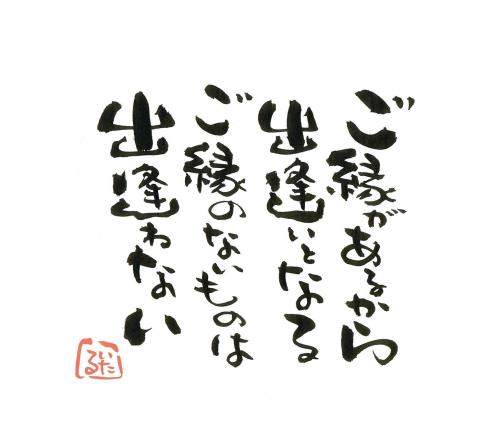 ご縁があるから
出逢いとなる
ご縁のないものは
出逢わない